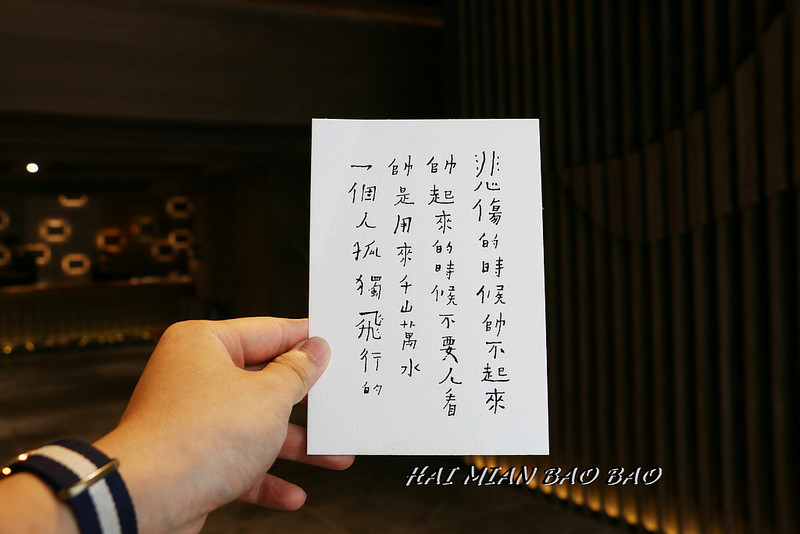 悲傷的時候帥不起來
帥起來的時候不要人看
帥是用來千山萬水
一個人孤獨飛行的
HAI MIAN BAO BAO